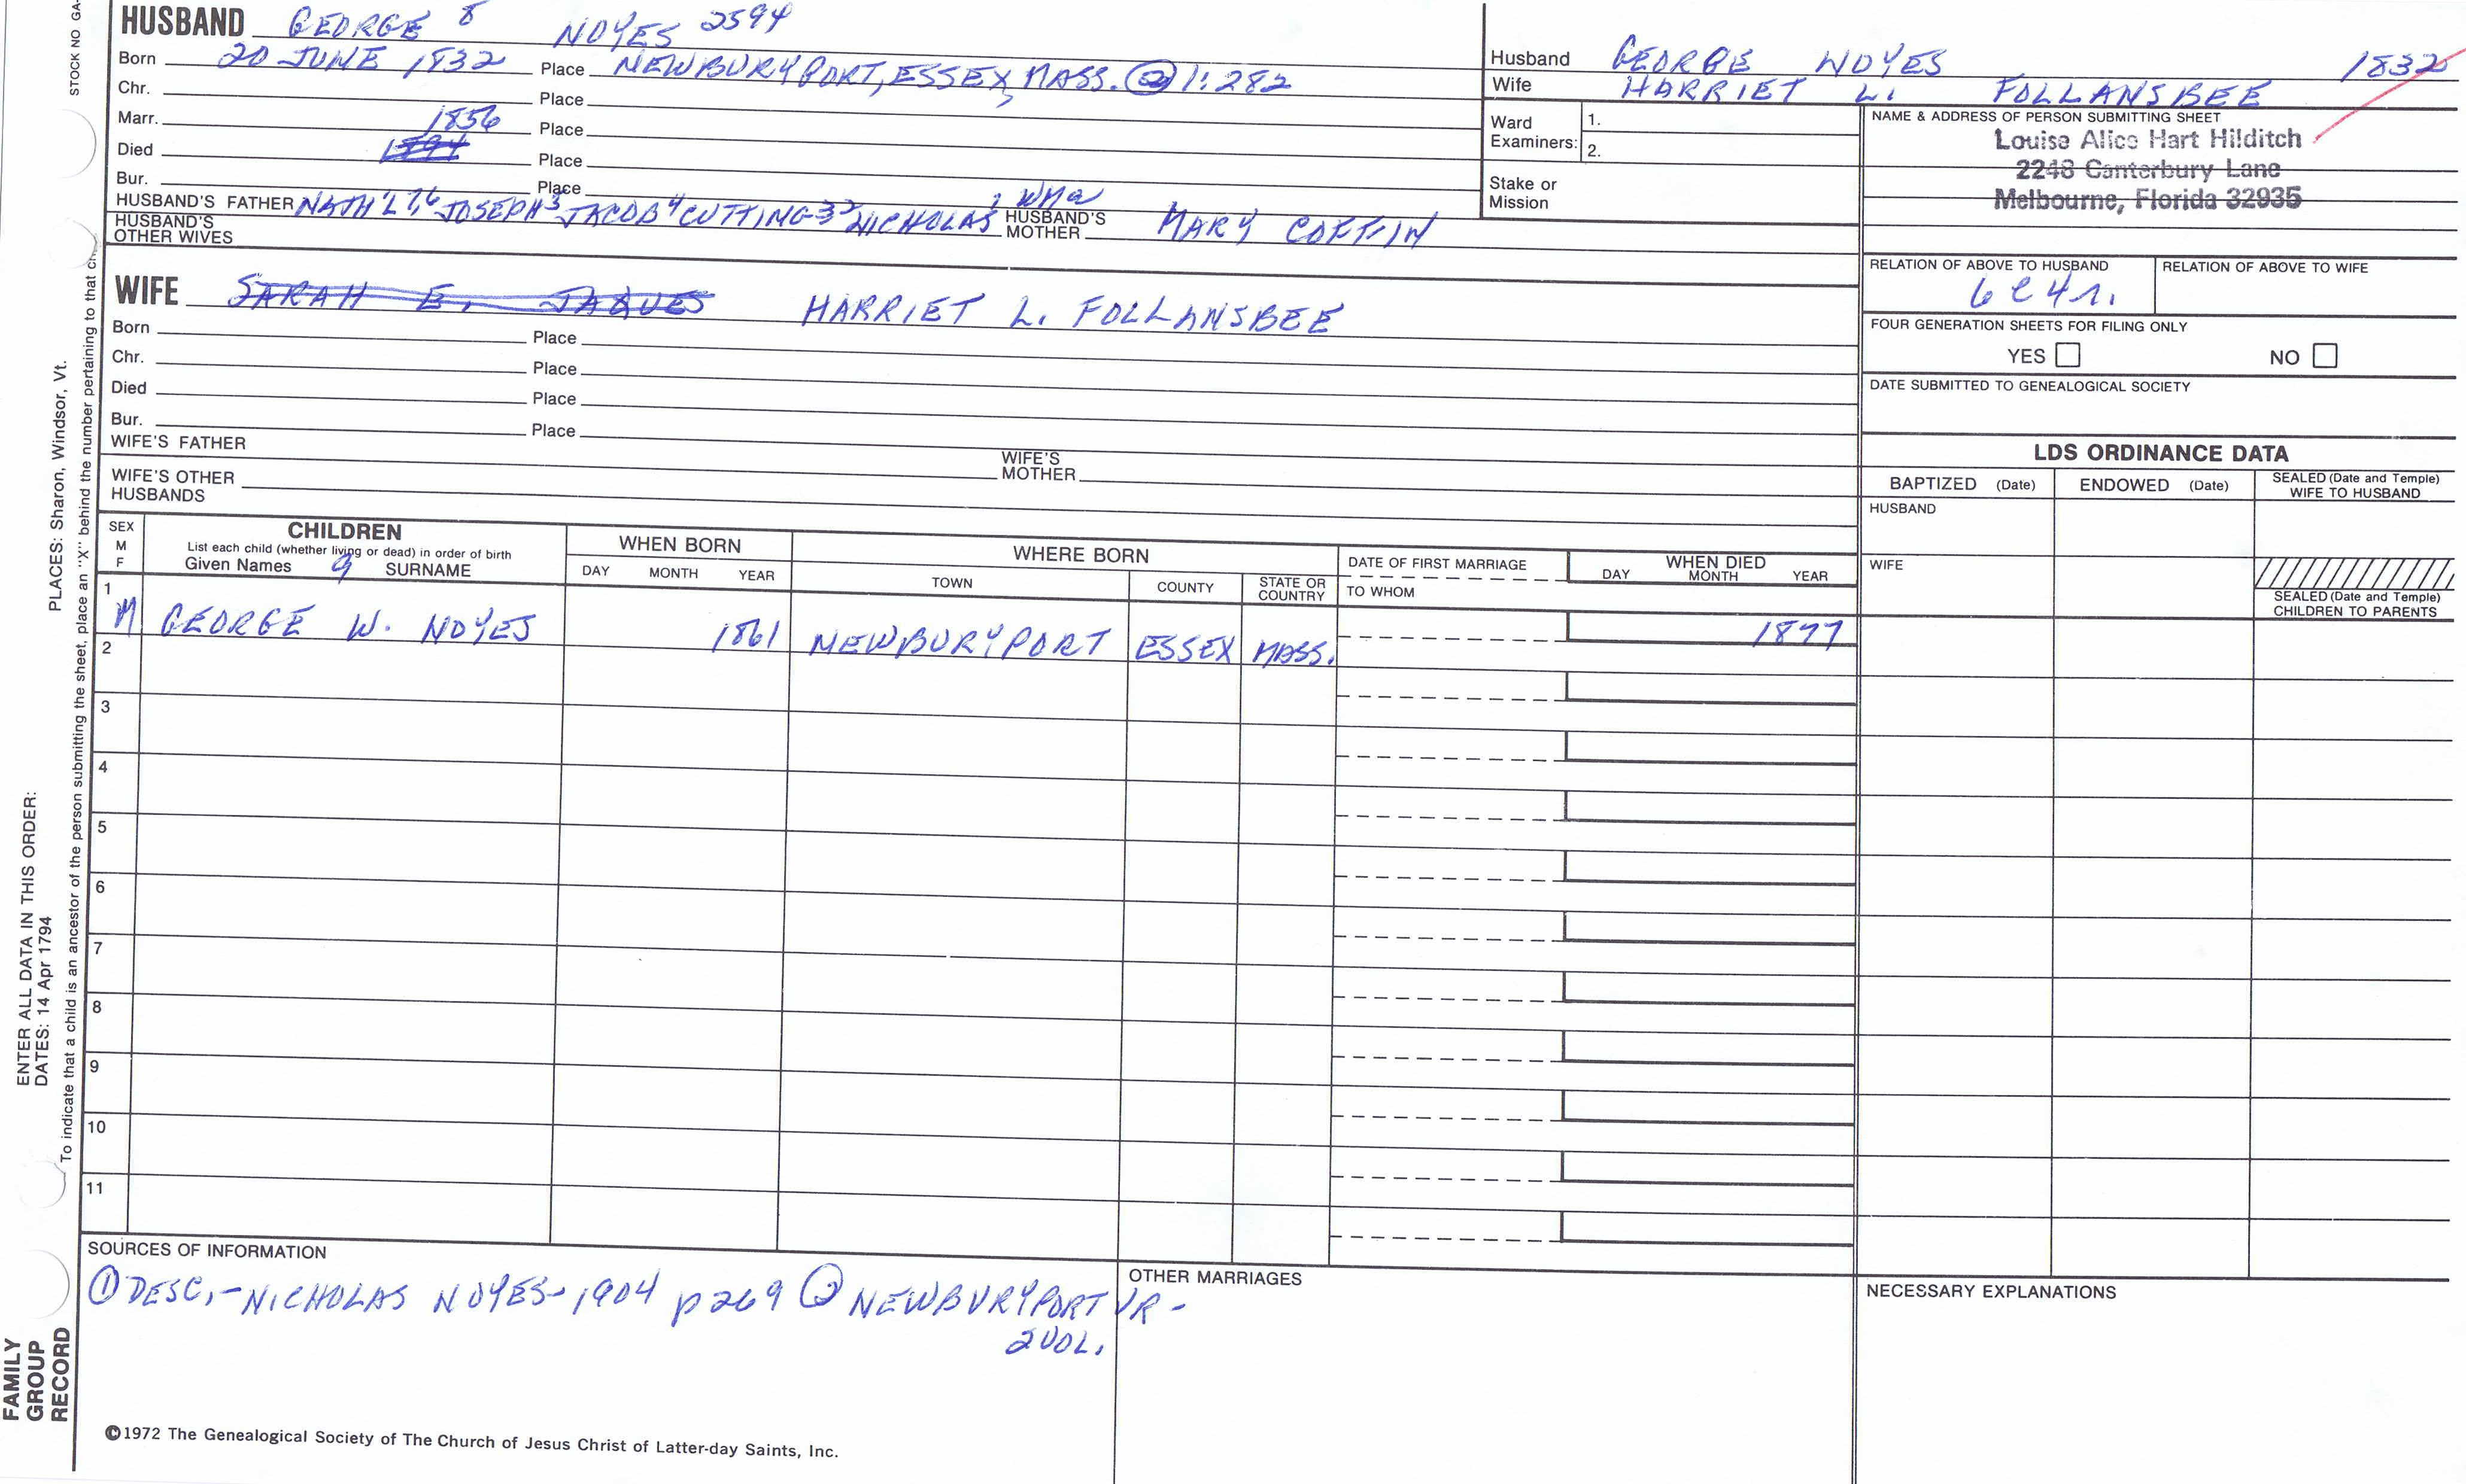 STOCK NO GA-
PLACES: Sharon, Windsor, Vt.
To indicate that a child is an ancestor of the person submitting the sheet, place an "X" behind the number pertaining to that
ENTER ALL DATA IN THIS ORDER:
DATES: 14 Apr 1794
FAMILY
GROUP
RECORD
HUSBAND GEORGE 8 NOYES 2594
Born 20 JUNE 1832 Place NEWBURYPORT, ESSEX, MASS. ② 1:282
Chr. Place
Marr. 1856 Place
Died Place
Bur. Place
HUSBAND'S FATHER NATH'L 7,6 JOSEPH 5 JACOB 4 CUTTING 3 NICHOLAS
HUSBAND'S MOTHER MARY COFFIN
HUSBAND'S
OTHER WIVES
Husband GEORGE NOYES 1832
Wife HARRIET L. FOLLANSBEE
Ward
Examiners: 1.
2.
Stake or
Mission
NAME & ADDRESS OF PERSON SUBMITTING SHEET
Louise Alice Hart Hilditch
2248 Canterbury Lane
Melbourne, Florida 32935
RELATION OF ABOVE TO HUSBAND RELATION OF ABOVE TO WIFE
6 C 4 r.
FOUR GENERATION SHEETS FOR FILING ONLY
YES NO
DATE SUBMITTED TO GENEALOGICAL SOCIETY
WIFE SARAH E. JAQUES HARRIET L. FOLLANSBEE
Born Place
Chr. Place
Died Place
Bur. Place
WIFE'S FATHER WIFE'S
MOTHER
WIFE'S OTHER
HUSBANDS
LDS ORDINANCE DATA
BAPTIZED (Date) ENDOWED (Date) SEALED (Date and Temple)
WIFE TO HUSBAND
HUSBAND
WIFE
SEALED (Date and Temple)
CHILDREN TO PARENTS
SEX
M
F
CHILDREN
List each child (whether living or dead) in order of birth
Given Names 9 SURNAME
WHEN BORN
DAY MONTH YEAR
WHERE BORN
TOWN COUNTY STATE OR
COUNTRY
DATE OF FIRST MARRIAGE
TO WHOM
WHEN DIED
DAY MONTH YEAR
1
M GEORGE W. NOYES 1861 NEWBURYPORT ESSEX MASS. 1877
2
3
4
5
6
7
8
9
10
11
SOURCES OF INFORMATION
① DESC,-NICHOLAS NOYES-1904 p269 ② NEWBURYPORT VR -
2VOL.
OTHER MARRIAGES
NECESSARY EXPLANATIONS
©1972 The Genealogical Society of The Church of Jesus Christ of Latter-day Saints, Inc.